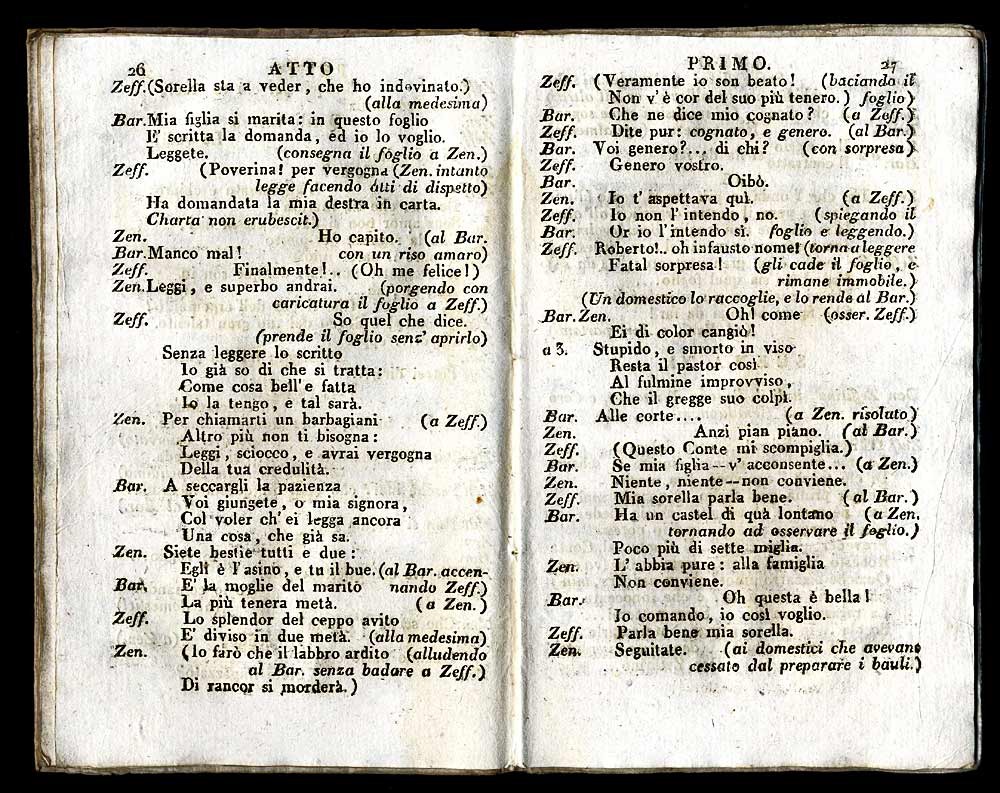 26 ATTO
Zeff. (Sorella sta a veder, che ho indovinato.)
(alla medesima)
Bar. Mia figlia si marita: in questo foglio
E' scritta la domanda, ed io lo voglio.
Leggete. (consegna il foglio a Zen.)
Zeff. (Poverina! per vergogna (Zen. intanto
legge facendo atti di dispetto)
Ha domandata la mia destra in carta.
Charta non erubescit.)
Zen. Ho capito. (al Bar.
Bar. Manco mal! con un riso amaro)
Zeff. Finalmente!.. (Oh me felice!)
Zen. Leggi, e superbo andrai. (porgendo con
caricatura il foglio a Zeff.)
Zeff. So quel che dice.
(prende il foglio senz' aprirlo)
Senza leggere lo scritto
Io già so di che si tratta:
Come cosa bell' e fatta
Io la tengo, e tal sarà.
Zen. Per chiamarti un barbagiani (a Zeff.)
Altro più non ti bisogna:
Leggi, sciocco, e avrai vergogna
Della tua credulità.
Bar. A seccargli la pazienza
Voi giungete, o mia signora,
Col voler ch' ei legga ancora
Una cosa, che già sa.
Zen. Siete bestie tutti e due:
Egli è l'asino, e tu il bue. (al Bar. accen-
Bar. E' la moglie del marito nando Zeff.)
La più tenera metà. (a Zen.)
Zeff. Lo splendor del ceppo avito
E' diviso in due metà. (alla medesima)
Zen. (Io farò che il labbro ardito (alludendo
al Bar. senza badare a Zeff.)
Di rancor si morderà.)
PRIMO. 27
Zeff. (Veramente io son beato! (baciando il
Non v' è cor del suo più tenero.) foglio)
Bar. Che ne dice mio cognato? (a Zeff.)
Zeff. Dite pur: cognato, e genero. (al Bar.)
Bar. Voi genero?... di chi? (con sorpresa)
Zeff. Genero vostro.
Bar. Oibò.
Zen. Io t' aspettava quì. (a Zeff.)
Zeff. Io non l' intendo, no. (spiegando il
Bar. Or io l'intendo sì. foglio e leggendo.)
Zeff. Roberto!.. oh infausto nome! (torna a leggere
Fatal sorpresa! (gli cade il foglio, e
rimane immobile.)
(Un domestico lo raccoglie, e lo rende al Bar.)
Bar. Zen. Oh! come (osser. Zeff.)
Ei di color cangiò!
a 3. Stupido, e smorto in viso
Resta il pastor così
Al fulmine improvviso,
Che il gregge suo colpì.
Bar. Alle corte.... (a Zen. risoluto)
Zen. Anzi pian piano. (al Bar.)
Zeff. (Questo Conte mi scompiglia.)
Bar. Se mia figlia -- v' acconsente... (a Zen.)
Zen. Niente, niente -- non conviene.
Zeff. Mia sorella parla bene. (al Bar.)
Bar. Ha un castel di quà lontano (a Zen.
tornando ad osservare il foglio.)
Poco più di sette miglia.
Zen. L' abbia pure: alla famiglia
Non conviene.
Bar. Oh questa è bella!
Io comando, io così voglio.
Zeff. Parla bene mia sorella.
Zen. Seguitate. (ai domestici che avevano
cessato dal preparare i bauli.)